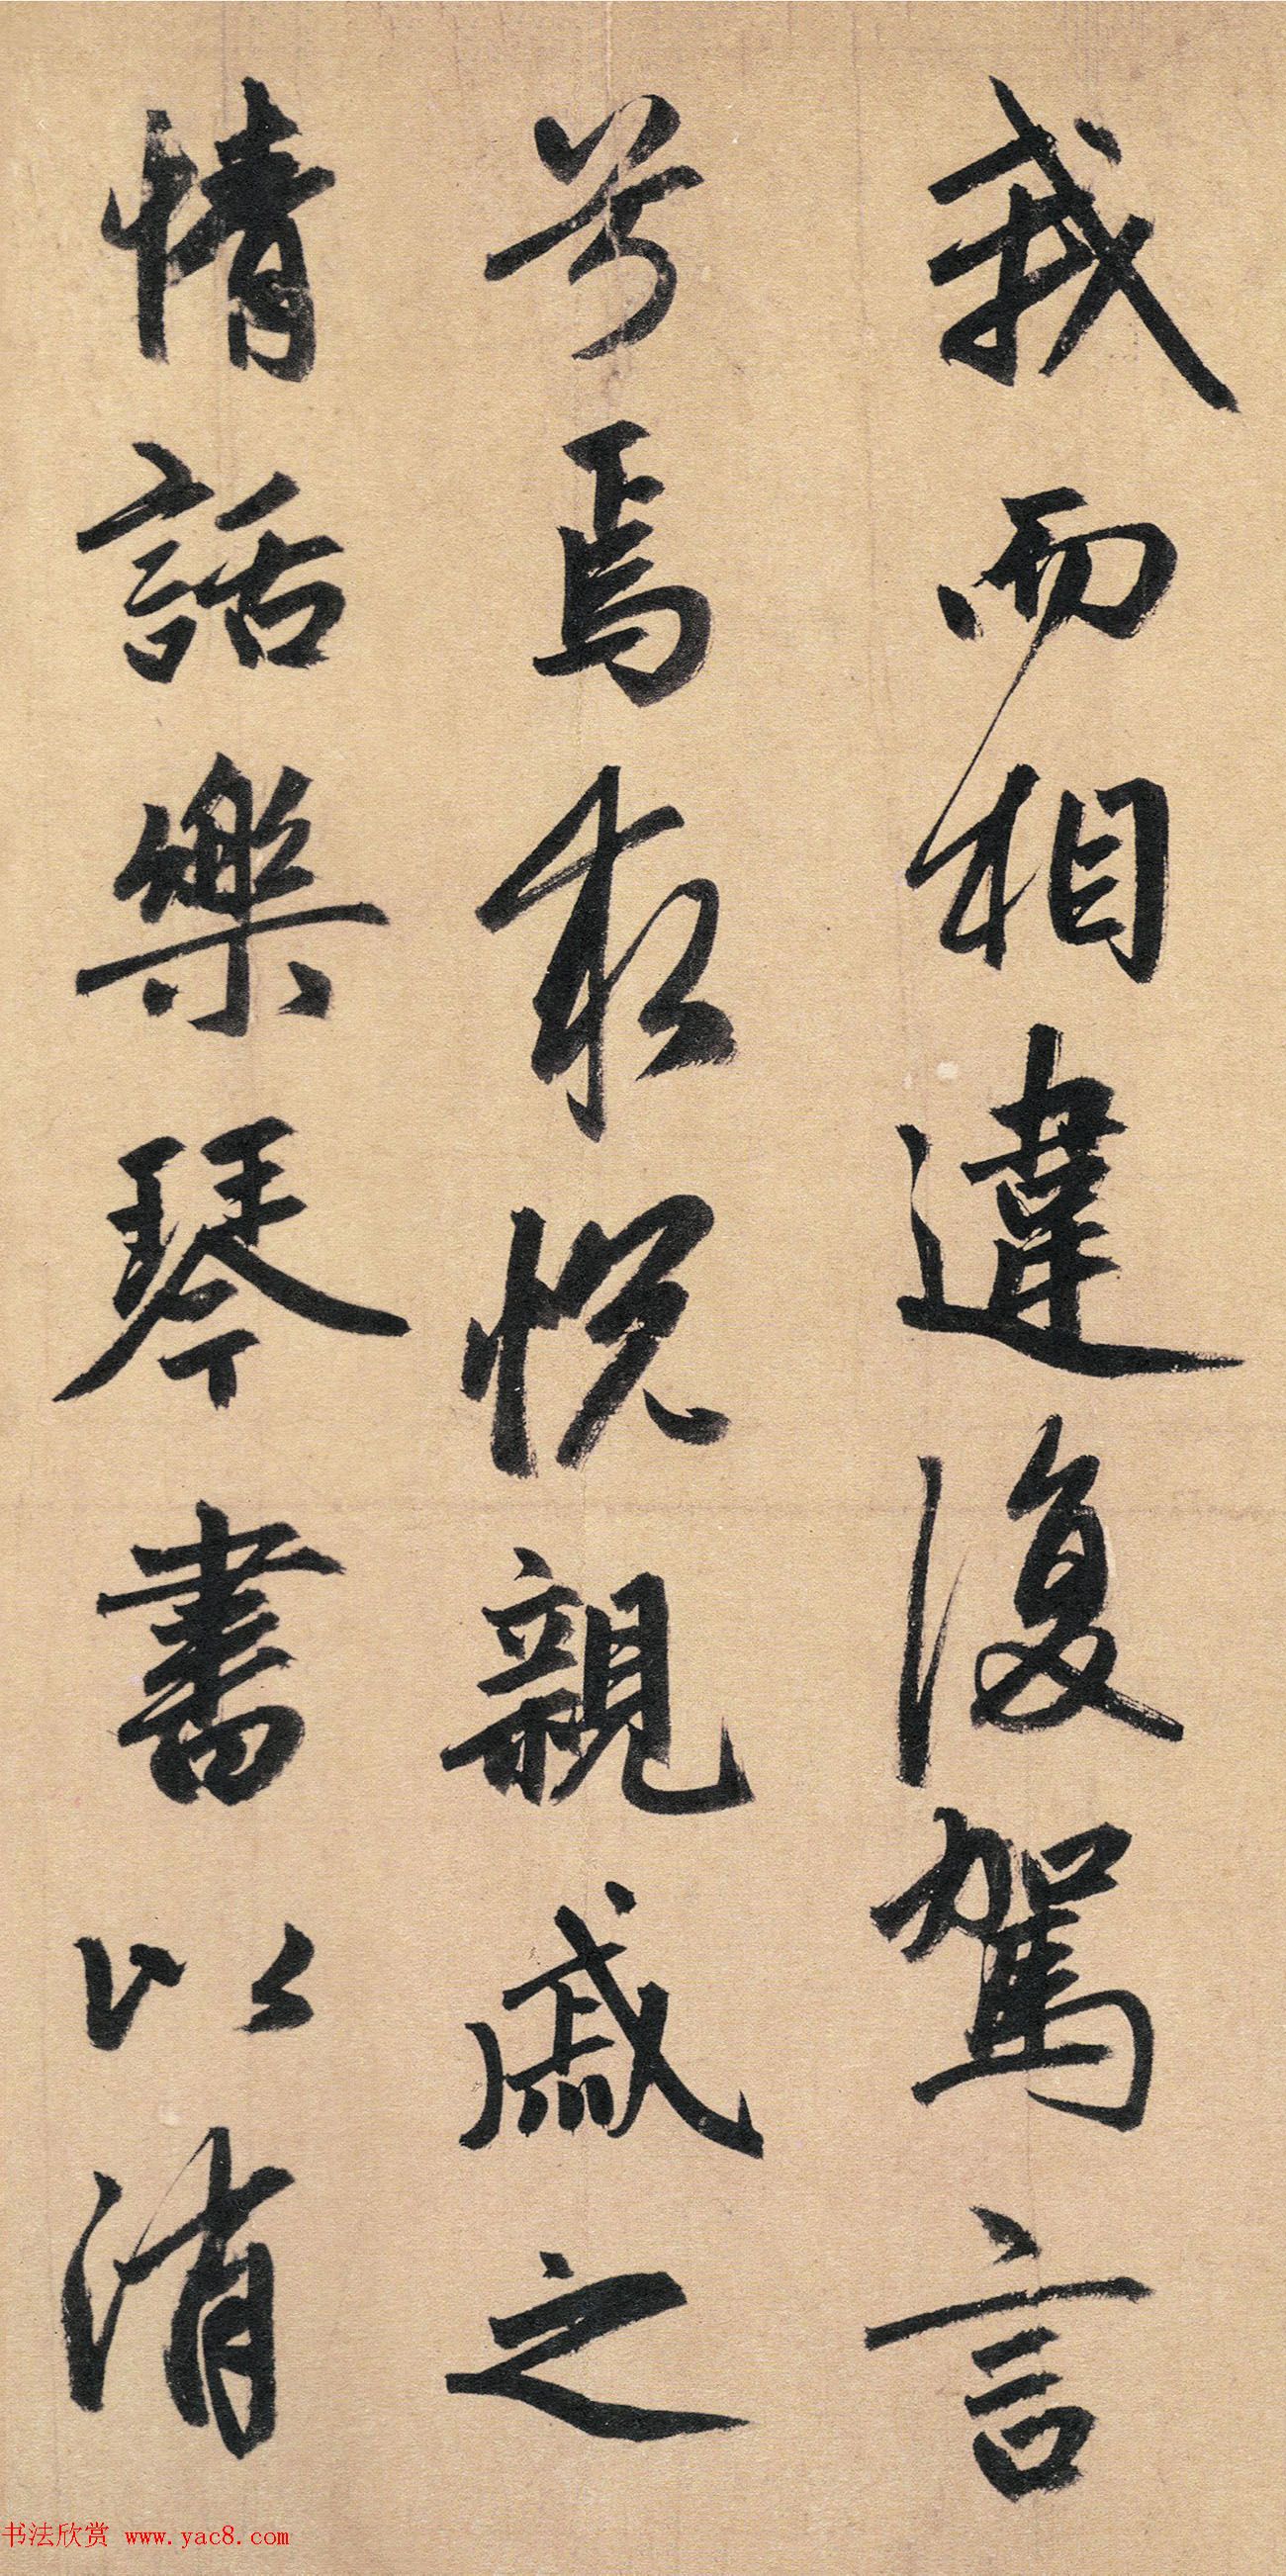 我而相違復駕言
兮焉求悅親戚之
情話樂琴書以消
书法欣赏 www.yac8.com